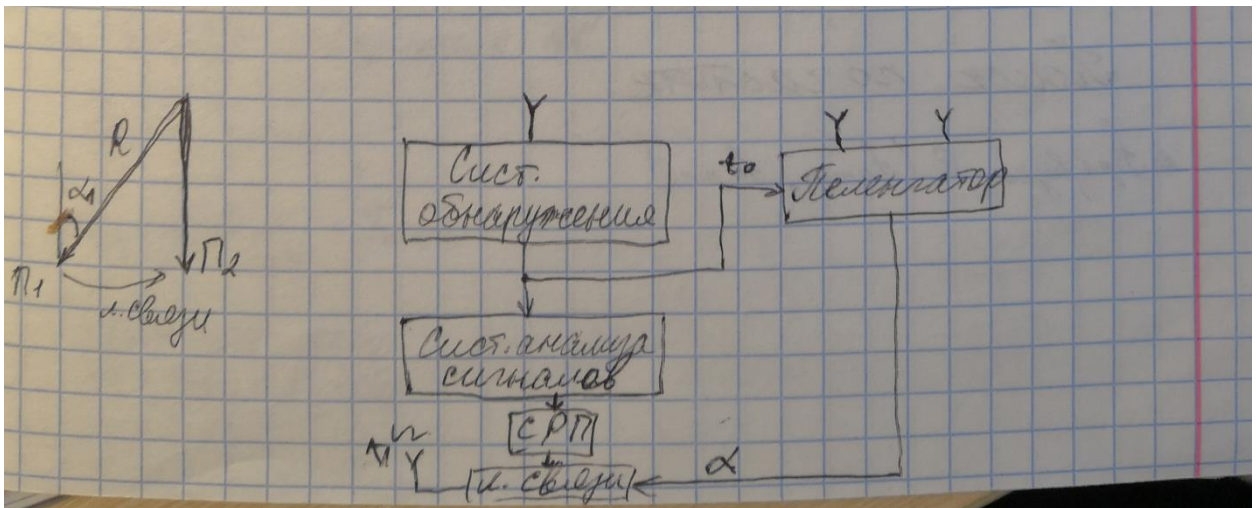 R
α₁
П₁
П₂
л. связи
Сист.
обнаружения
t₀
Пеленгатор
Сист. анализа
сигналов
СРП
л. связи
α